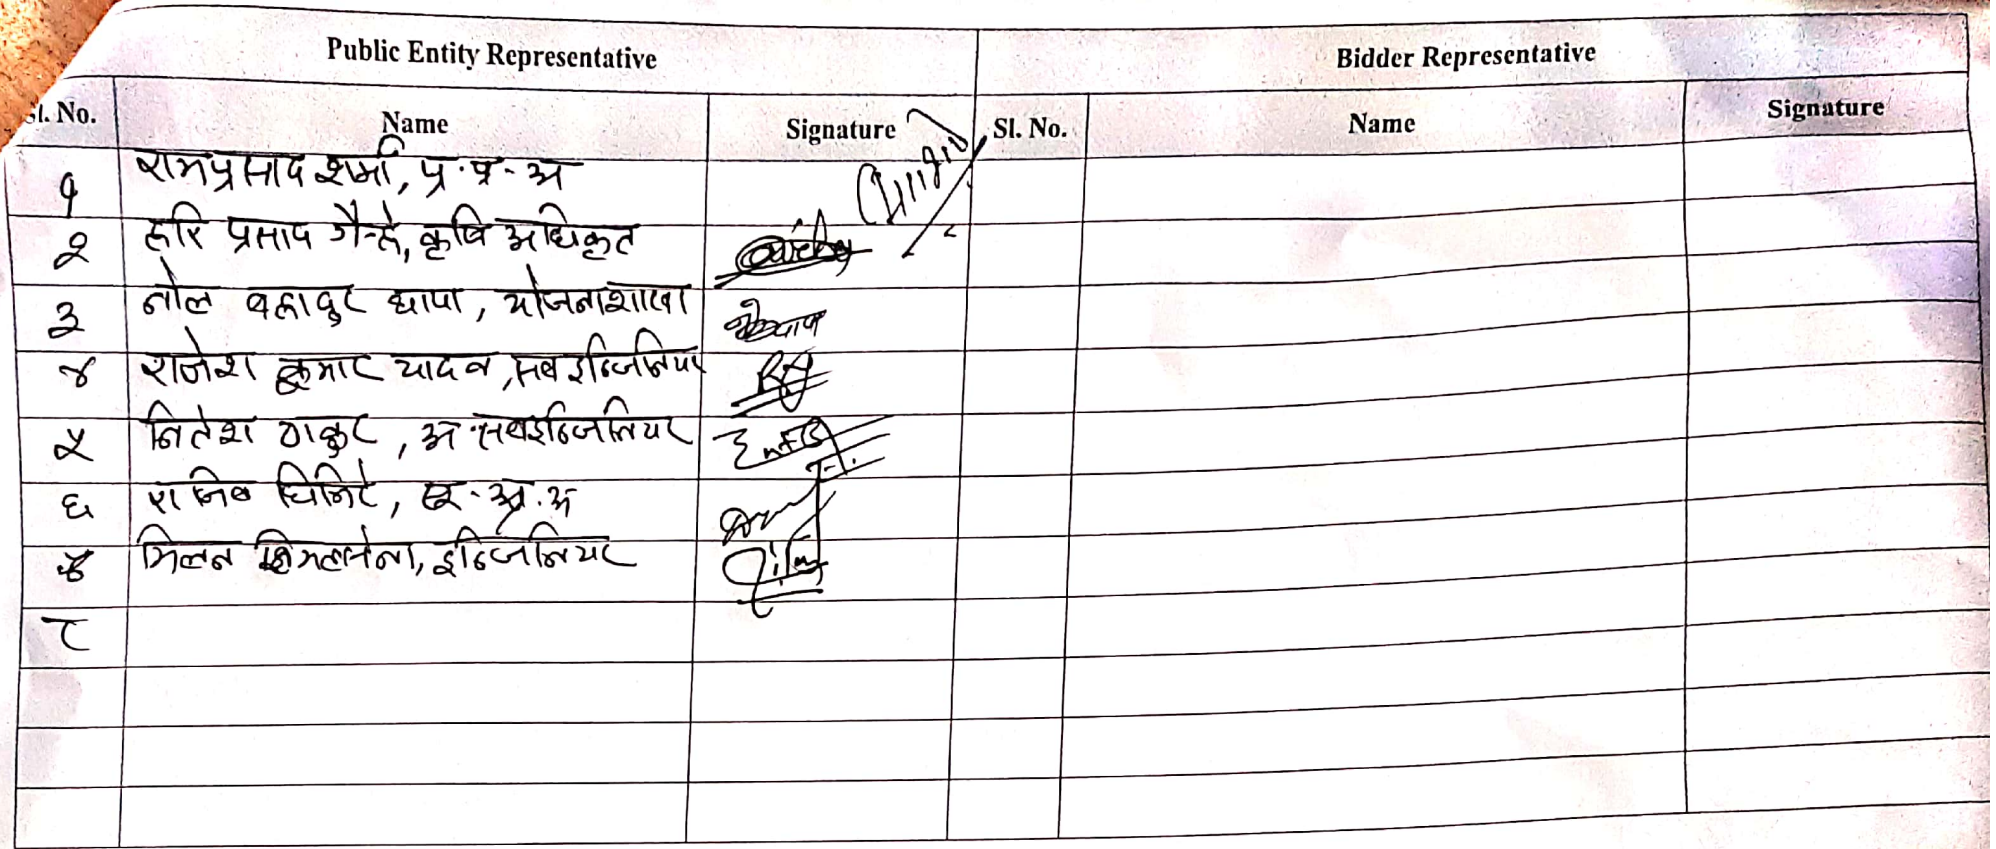 Public Entity Representative Bidder Representative
Sl. No. Name Signature Sl. No. Name Signature
१ रामप्रसाद शर्मा, प्र.प्र.अ
२ हरि प्रसाद गैह्रे, कृषि अधिकृत
३ नोल बहादुर थापा, योजना शाखा
४ राजेश कुमार यादव, सब इन्जिनियर
५ नितेश ठाकुर, अ सबइन्जिनियर
६ राजिव घिमिरे,
मिलन हिमालसेना, इन्जिनियर
८